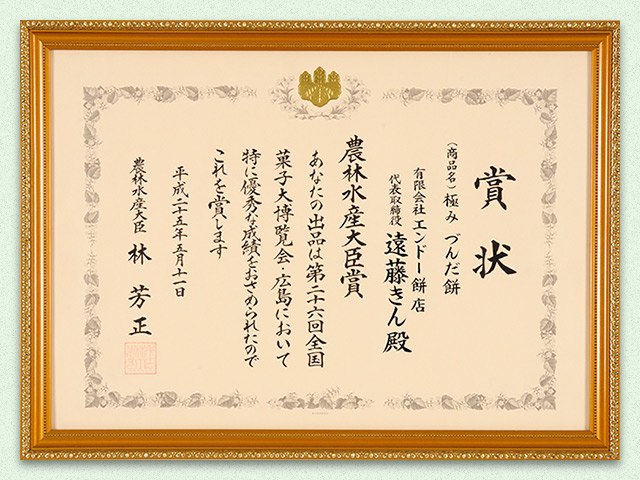 賞状
(商品名)極み づんだ餅
有限会社エンドー餅店
代表取締役 遠藤きん殿
農林水産大臣賞
あなたの出品は第二十六回全国
菓子大博覧会・広島において
特に優秀な成績をおさめられたので
これを賞します
平成二十五年五月十一日
農林水産大臣 林芳正